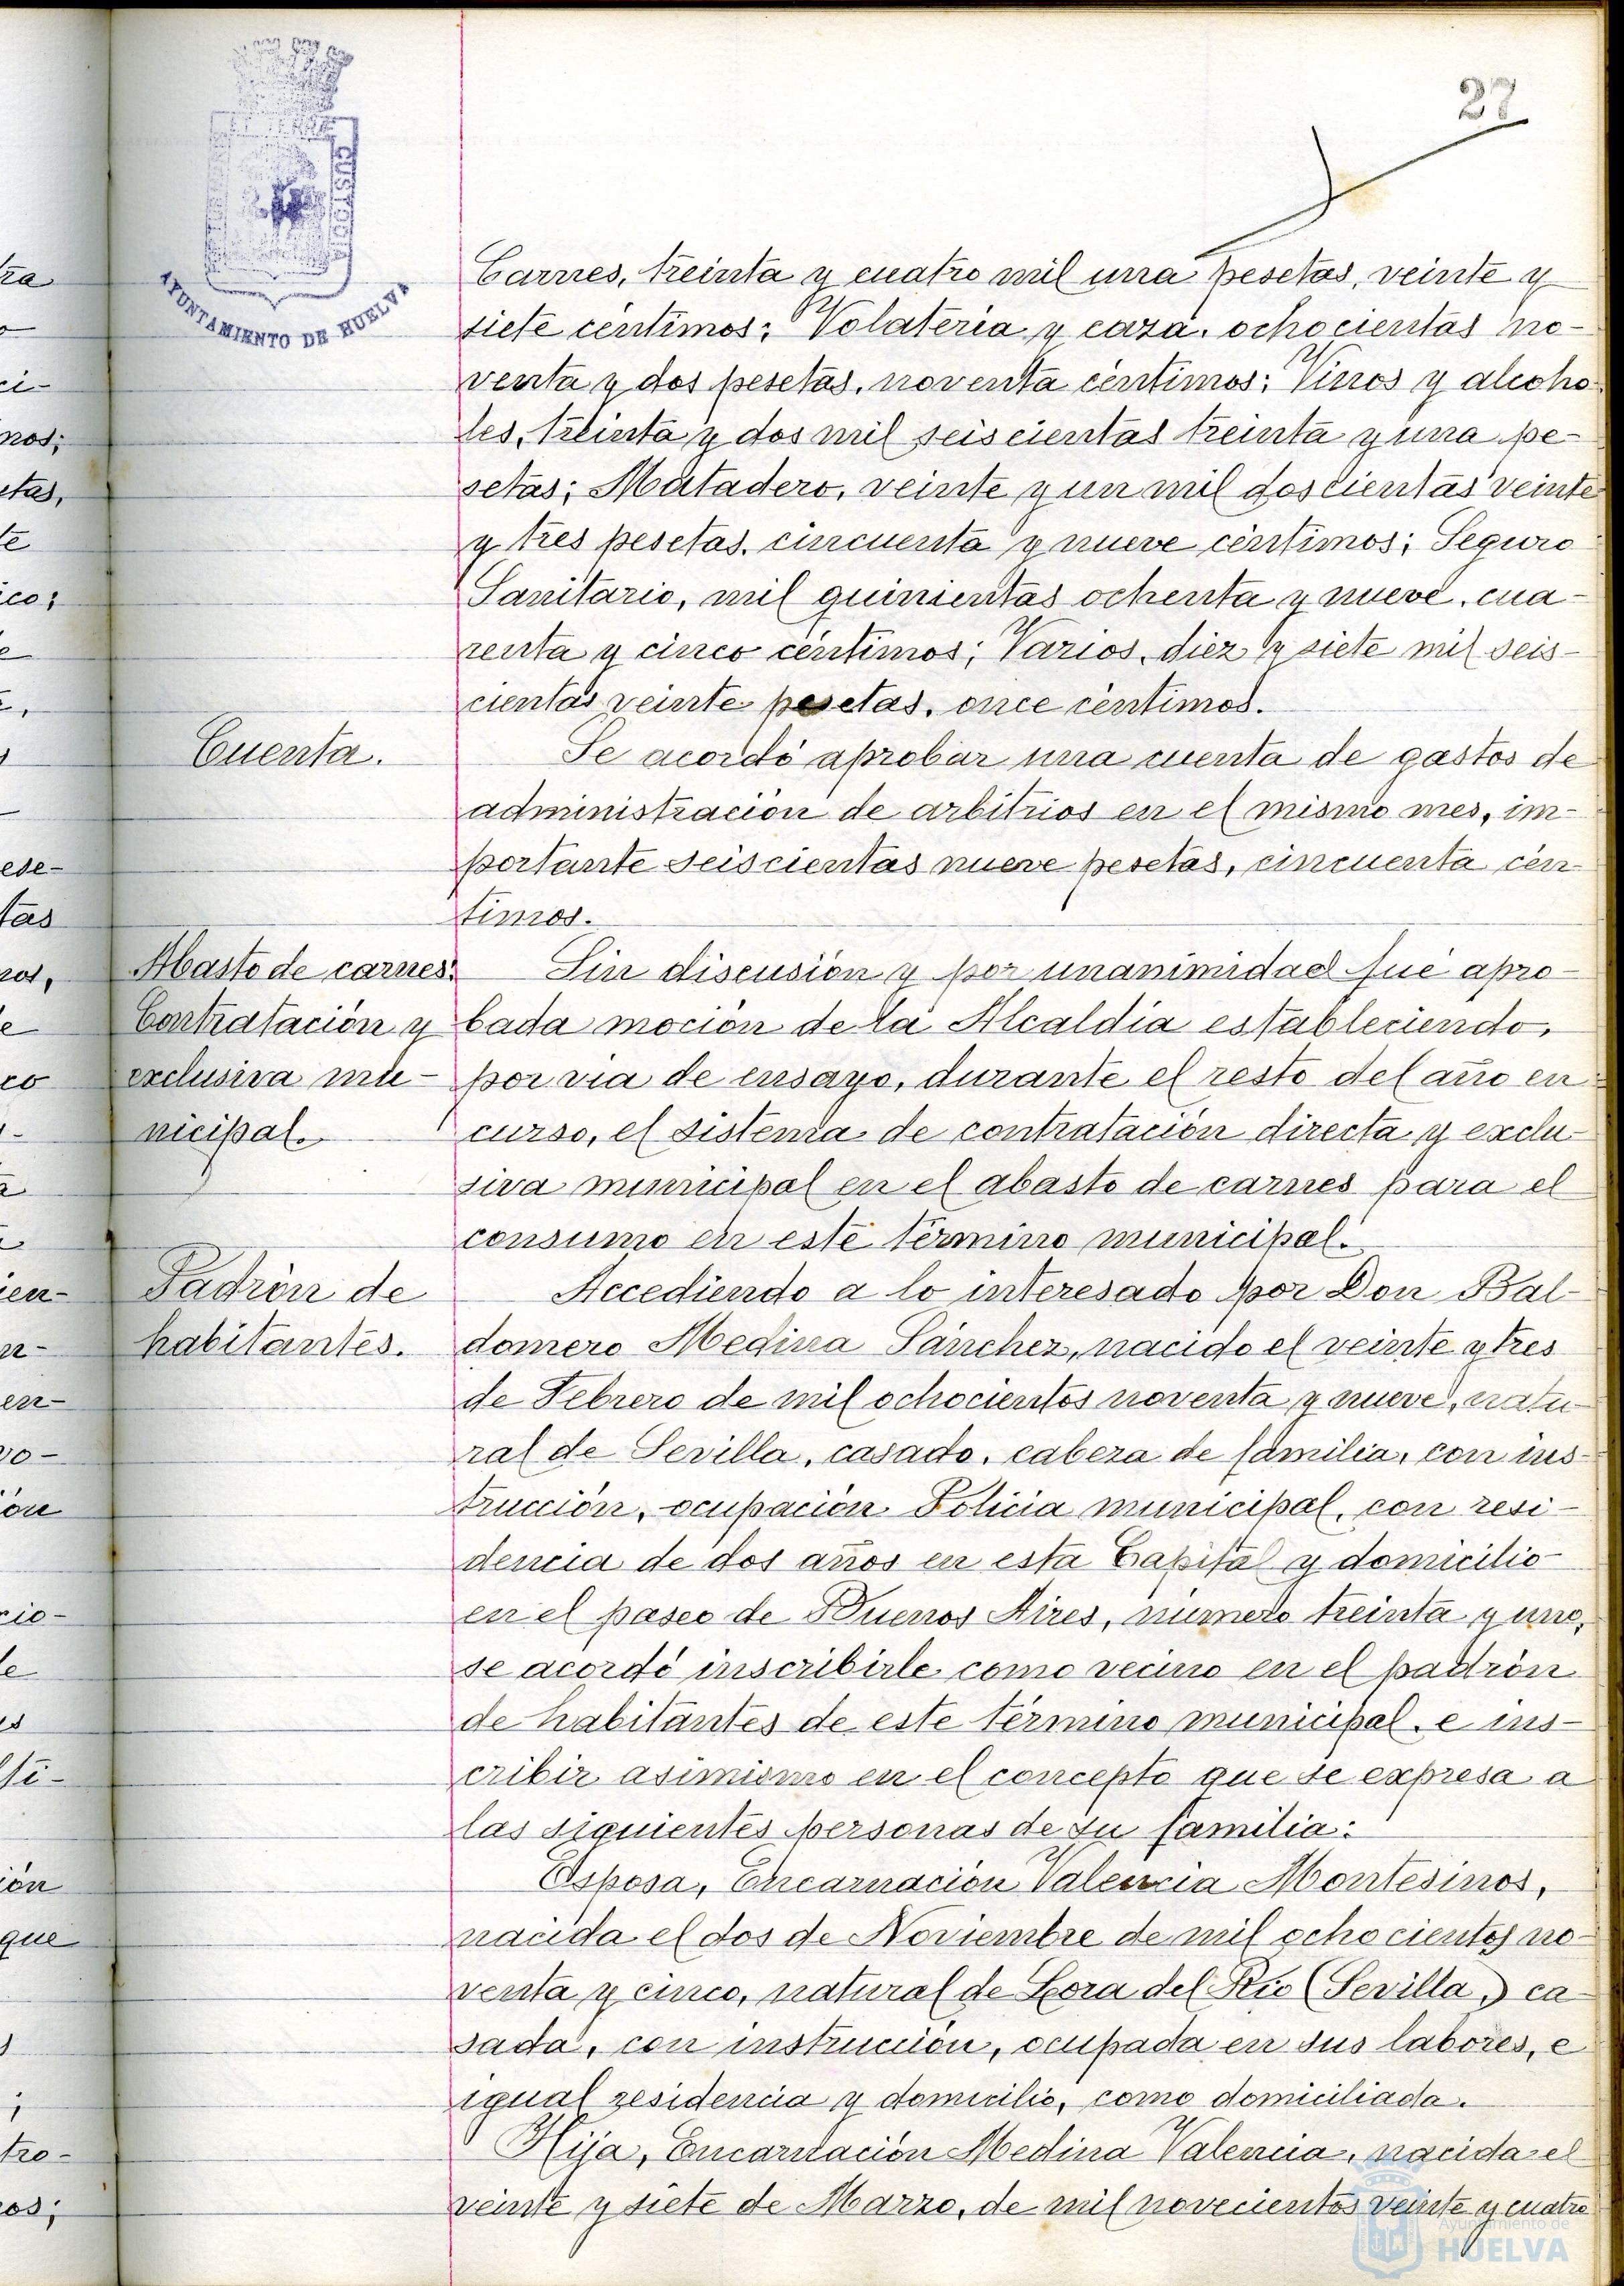 27
ET TERRÆ
CUSTODIA
AYUNTAMIENTO DE HUELVA
Carnes, treinta y cuatro mil una pesetas, veinte y
siete céntimos; Volatería y caza, ochocientas no-
venta y dos pesetas, noventa céntimos; Vinos y alcoho
les, treinta y dos mil seiscientas treinta y una pe-
setas; Matadero, veinte y un mil doscientas veinte
y tres pesetas, cincuenta y nueve céntimos; Seguro
Sanitario, mil quinientas ochenta y nueve, cua-
renta y cinco céntimos; Varios, diez y siete mil seis-
cientas veinte pesetas, once céntimos.
Cuenta.
Se acordó aprobar una cuenta de gastos de
administración de arbitrios en el mismo mes, im-
portante seiscientas nueve pesetas, cincuenta cén-
timos.
Abasto de carnes.
Contratación y
exclusiva mu-
nicipal.
Sin discusión y por unanimidad fué apro-
bada moción de la Alcaldía estableciendo,
por vía de ensayo, durante el resto del año en
curso, el sistema de contratación directa y exclu-
siva municipal en el abasto de carnes para el
consumo en este término municipal.
Padrón de
habitantes.
Accediendo a lo interesado por Don Bal-
domero Medina Sánchez, nacido el veinte y tres
de Febrero de mil ochocientos noventa y nueve, natu-
ral de Sevilla, casado, cabeza de familia, con ins-
trucción, ocupación Policía municipal, con resi-
dencia de dos años en esta Capital y domicilio
en el paseo de Buenos Aires, número treinta y uno,
se acordó inscribirle como vecino en el padrón
de habitantes de este término municipal, e ins-
cribir asimismo en el concepto que se expresa a
las siguientes personas de su familia:
Esposa, Encarnación Valencia Montesinos,
nacida el dos de Noviembre de mil ochocientos no-
venta y cinco, natural de Lora del Río (Sevilla,) ca-
sada, con instrucción, ocupada en sus labores, e
igual residencia y domicilio, como domiciliada.
Hija, Encarnación Medina Valencia, nacida el
veinte y siete de Marzo, de mil novecientos veinte y cuatro
Ayuntamiento de
HUELVA